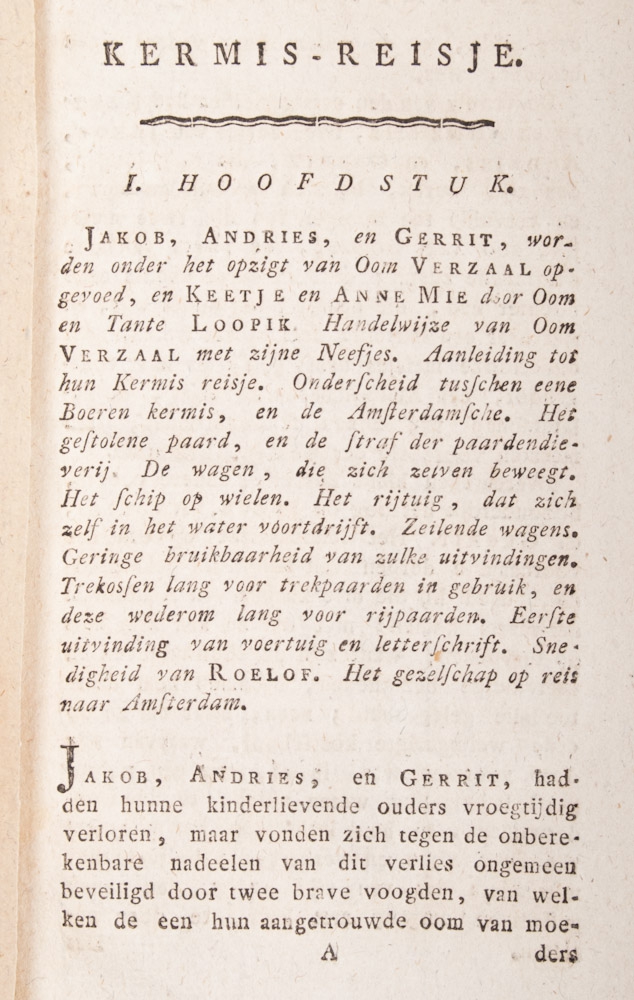 KERMIS-REISJE.
I. HOOFDSTUK.
JAKOB, ANDRIES, en GERRIT, wor-
den onder het opzigt van Oom VERZAAL op-
gevoed, en KEETJE en ANNE MIE door Oom
en Tante LOOPIK. Handelwijze van Oom
VERZAAL met zijne Neefjes. Aanleiding tot
hun Kermis reisje. Onderſcheid tusſchen eene
Boeren kermis, en de Amſterdamſche. Het
geſtolene paard, en de ſtraf der paardendie-
verij. De wagen, die zich zelven beweegt.
Het ſchip op wielen. Het rijtuig, dat zich
zelf in het water voortdrijft. Zeilende wagens.
Geringe bruikbaarheid van zulke uitvindingen.
Trekosſen lang voor trekpaarden in gebruik, en
deze wederom lang voor rijpaarden. Eerſte
uitvinding van voertuig en letterſchrift. Sne-
digheid van ROELOF. Het gezelſchap op reis
naar Amſterdam.
JAKOB, ANDRIES, en GERRIT, had-
den hunne kinderlievende ouders vroegtijdig
verloren, maar vonden zich tegen de onbere-
kenbare nadeelen van dit verlies ongemeen
beveiligd door twee brave voogden, van wel-
ken de een hun aangetrouwde oom van moe-
A ders